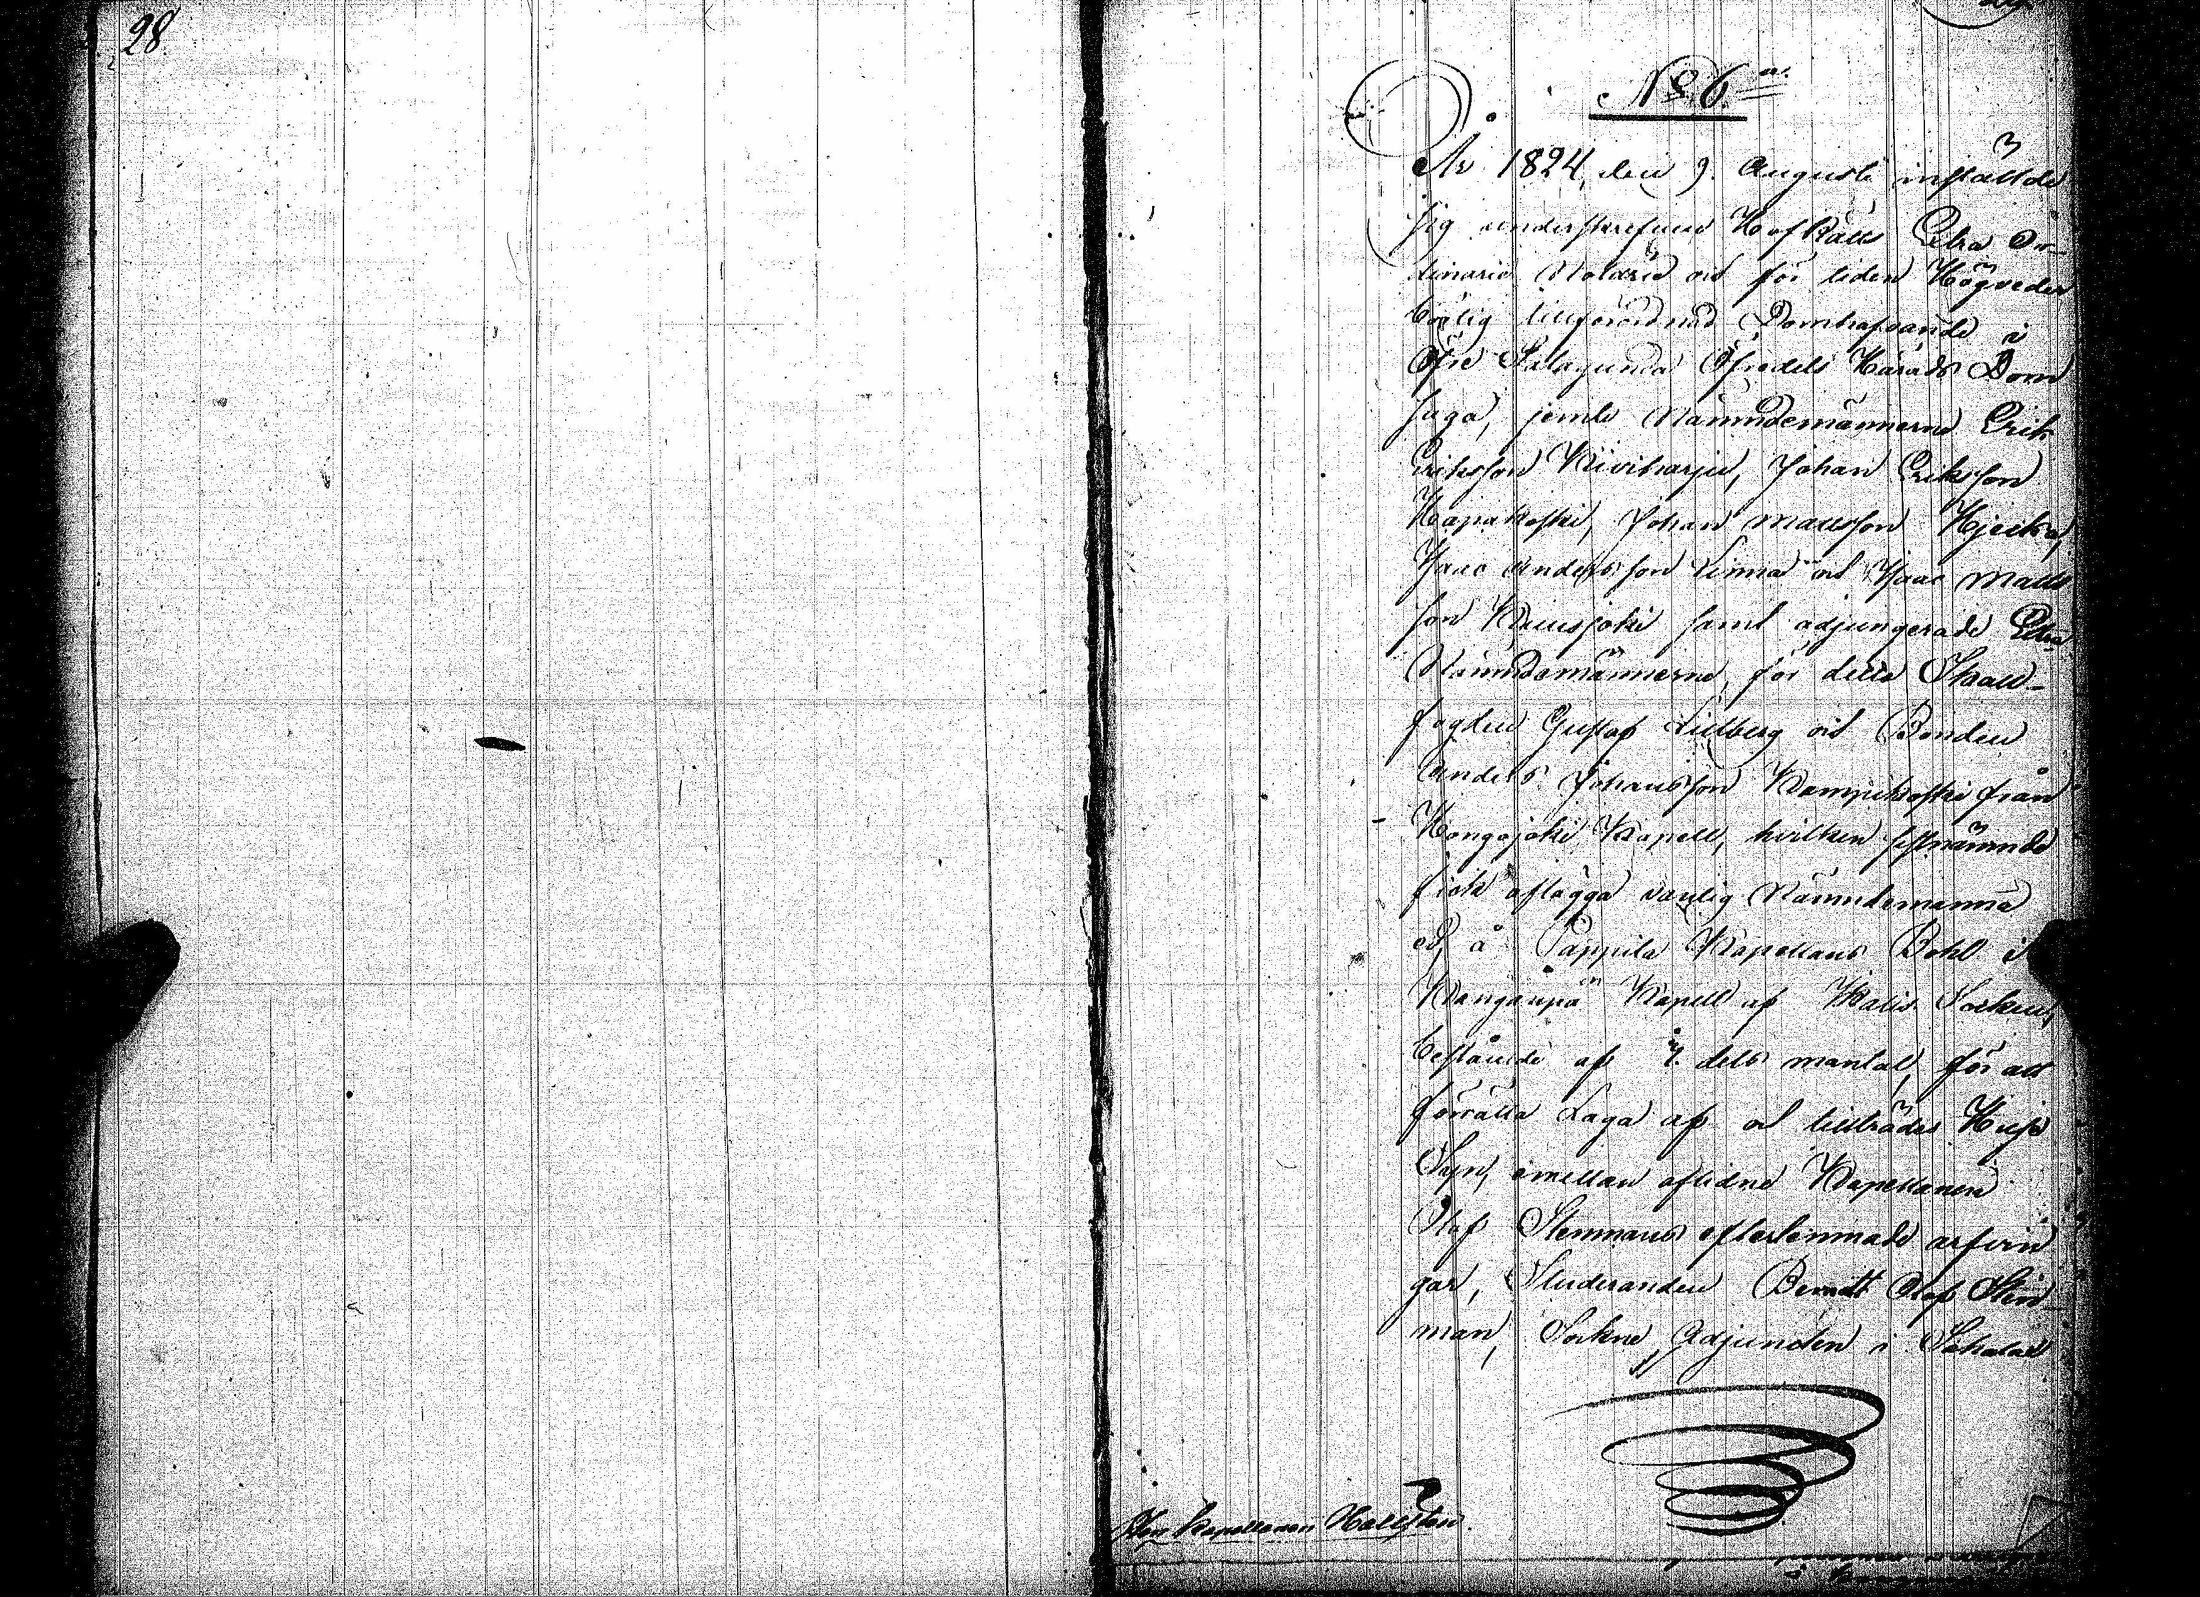 28
No 6.
År 1824, den 9. Augusti inställde
sig underskrefven HofRätts Extra Or-
dinarie Notarie och för tiden Högveder
börlig tillförordnad Domhafvande i
Öfre Satagunda Öfredels Härads Dom
saga, jemte Nämndemännerne Erik
Eriksson Kiviharju, Johan Eriksson
Hapakoski, Johan Mattsson
Isaac Andersson Linna och Isaac Matts
son Kausjoki samt adjungerade Extra
Nämndemännerne, för detta
fogden Gustaf Lillberg och Bonden
Anders Johansson från
Hongojoki Kapell, hvilken sistnämnde
fick aflägga vanlig Nämndemanna
ed, å Pappila Kapellans Bohl i
Kapell af Socken,
bestående af dels mantal, för att
förrätta Laga af och tillträdes Huse
Syn, imellan aflidne Kapellanen
Olof Stenmans efterlemnade arfvin
gar, Studeranden Berndt Olof Sten
man, Sockne Adjuncten i
Herr Kapellanen Hallsten.